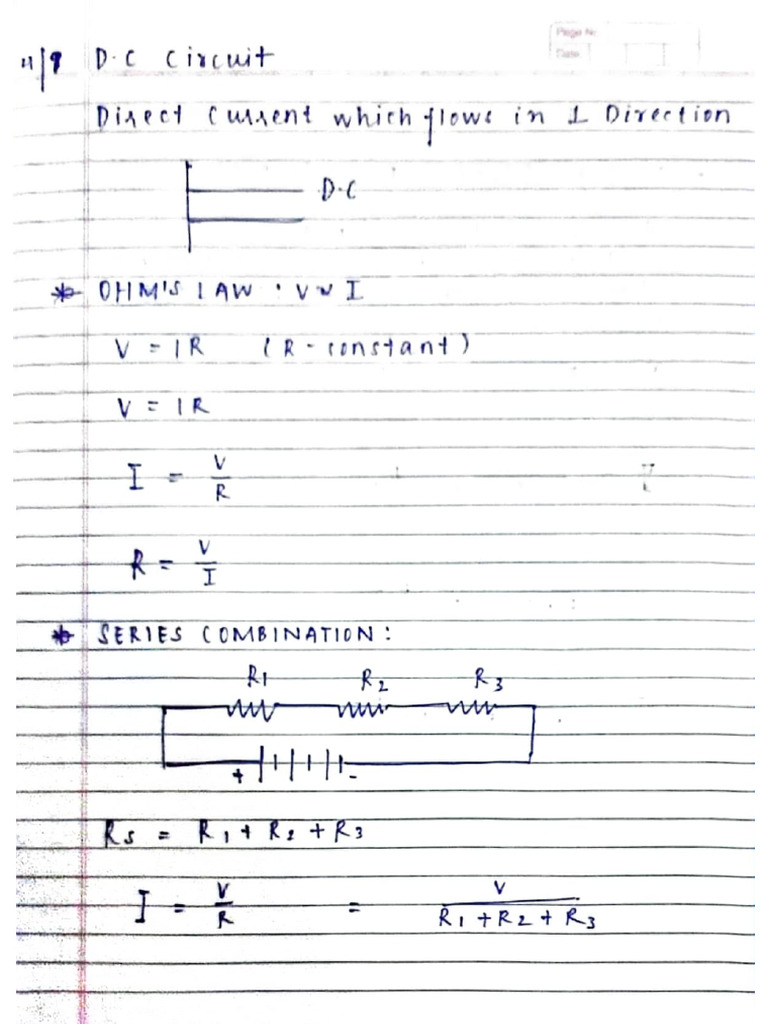 Page No.
Date
4/9 D.C Circuit
Direct Current which flows in 1 Direction
D.C
* OHM'S LAW : V ∝ I
V = IR (R - constant)
V = IR
I = V/R
R = V/I
* SERIES COMBINATION:
R1 R2 R3
+ -
Rs = R1 + R2 + R3
I = V/R = V/(R1 + R2 + R3)